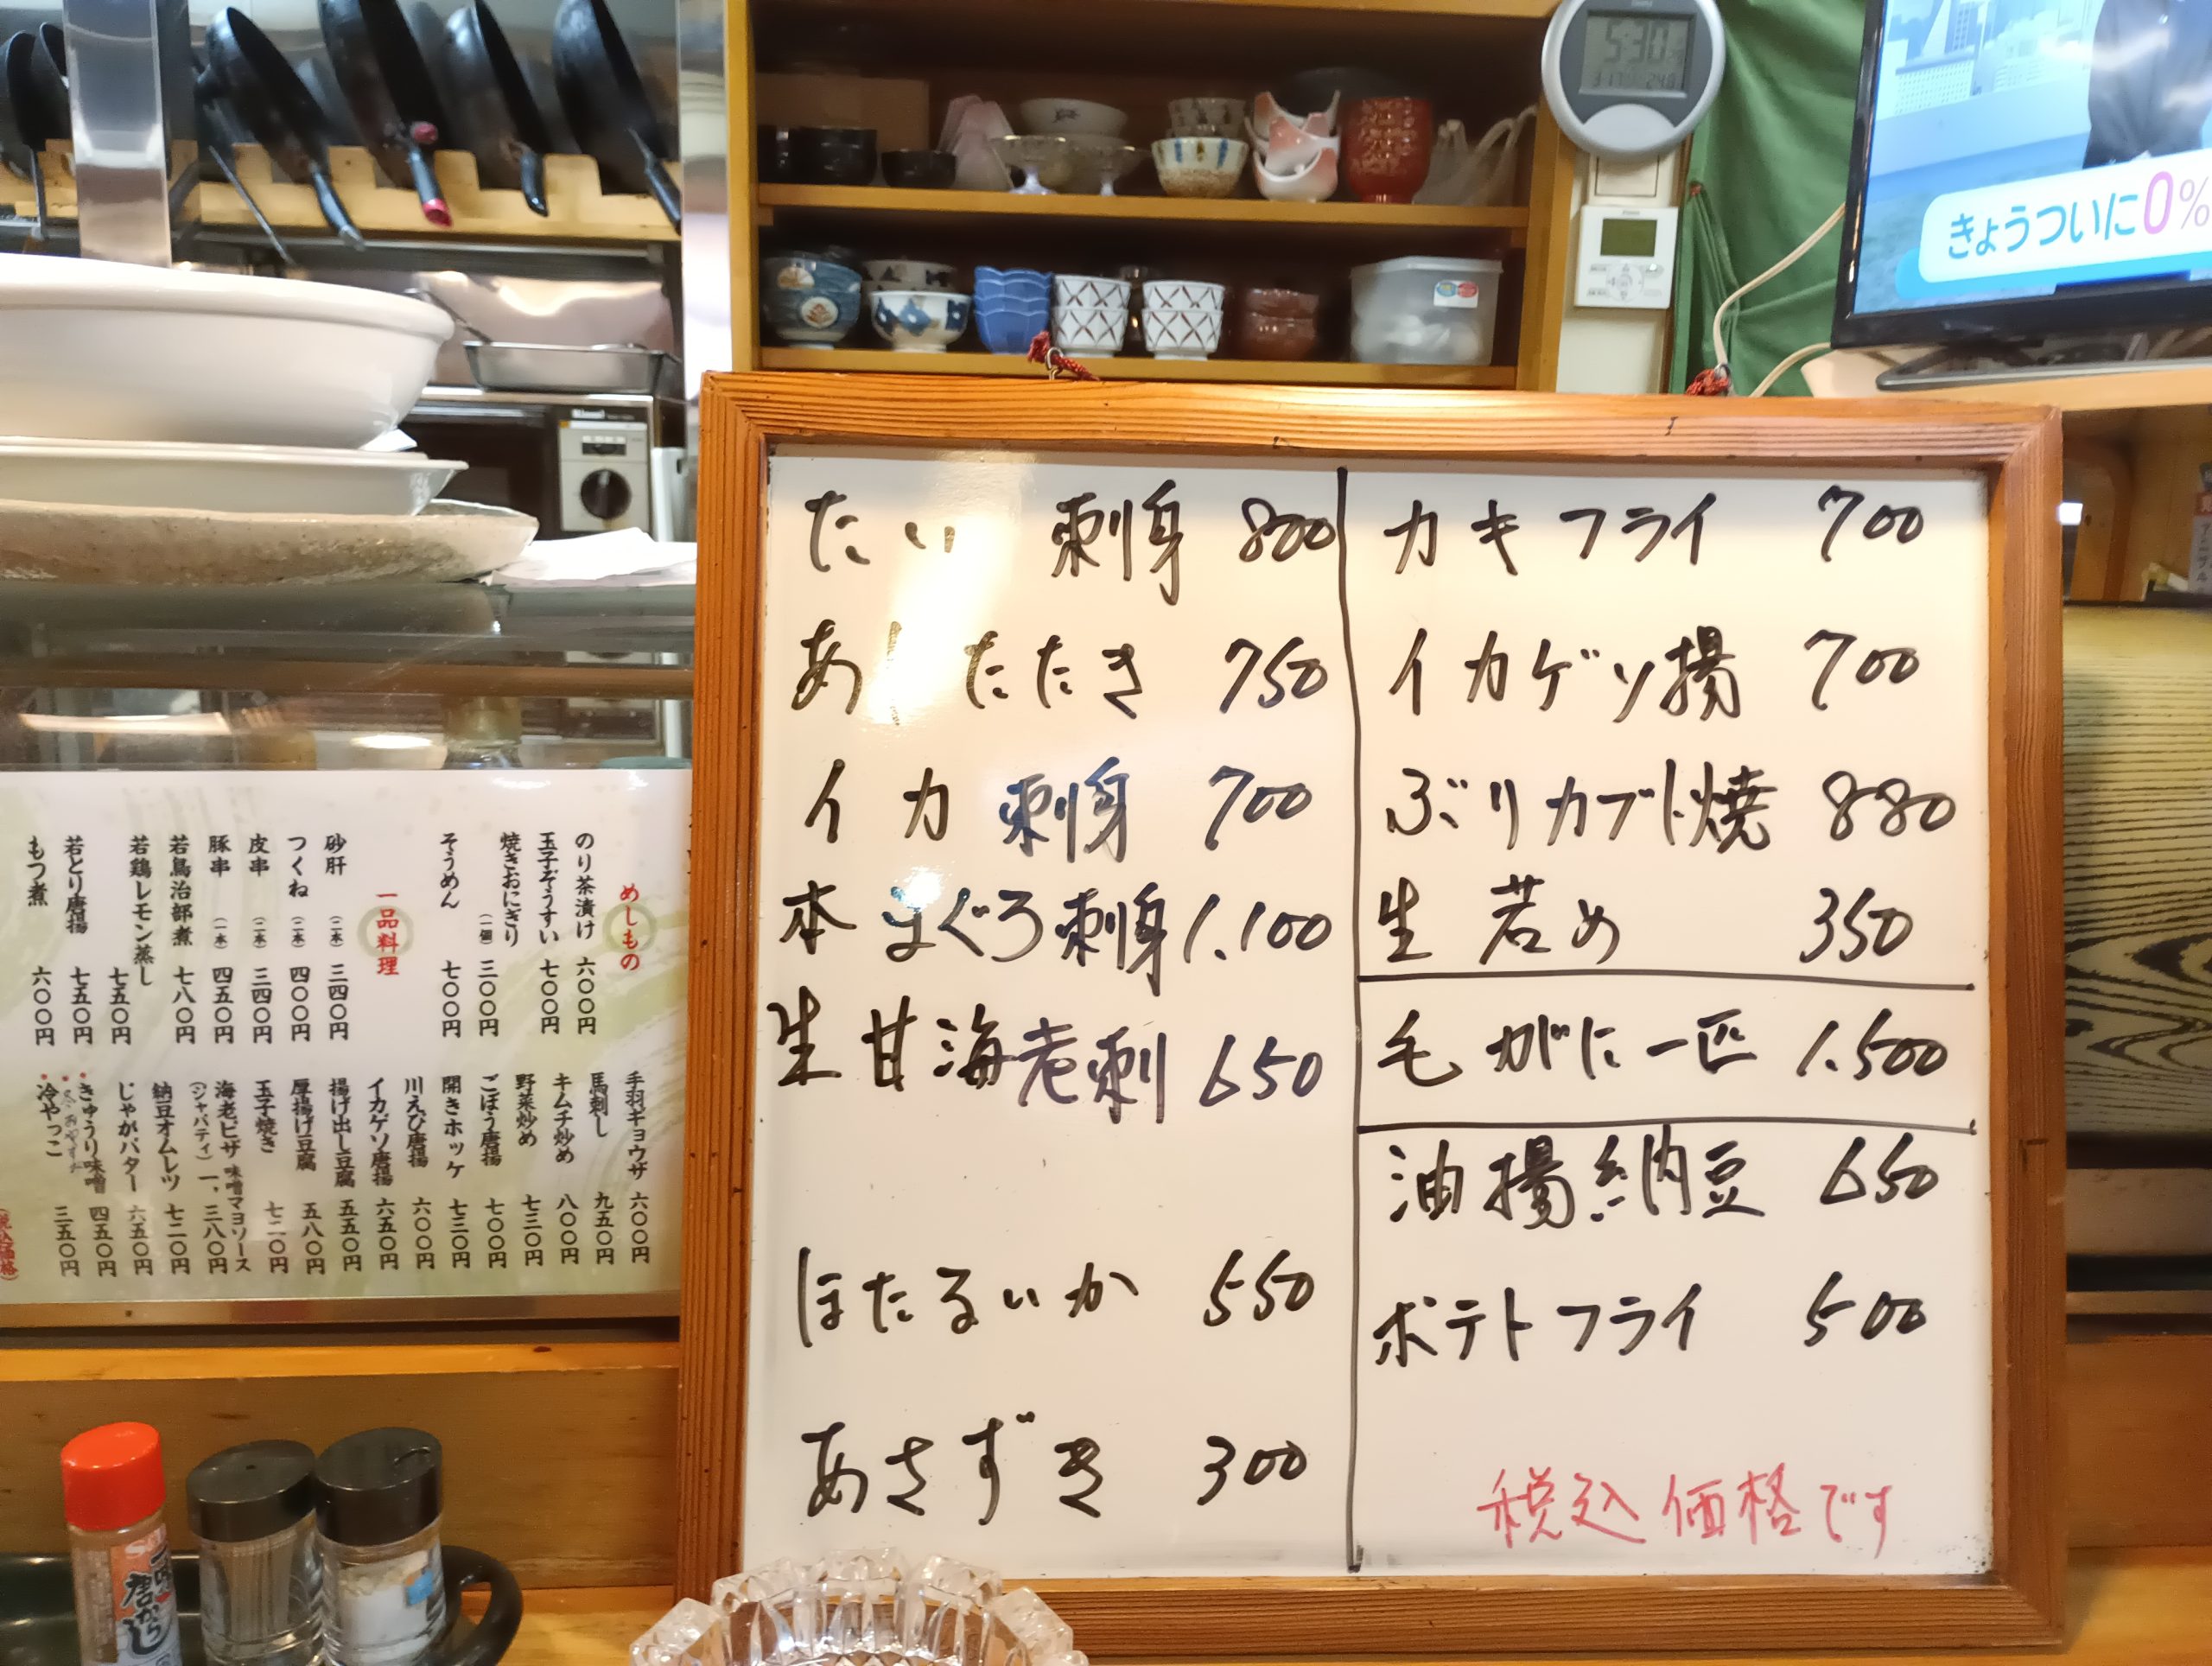 5:30
きょうついに0%
たい 刺身 800
あじたたき 750
イカ 刺身 700
本まぐろ刺身 1.100
生甘海老刺 650
ほたるいか 550
あさずき 300
カキフライ 700
イカゲソ揚 700
ぶりカブト焼 880
生若め 350
毛がに一匹 1.500
油揚納豆 650
ポテトフライ 500
税込価格です
めしもの
のり茶漬け 六〇〇円
玉子ぞうすい 七〇〇円
焼きおにぎり (一個) 三〇〇円
そうめん 七〇〇円
一品料理
砂肝 (二本) 三四〇円
つくね (二本) 四〇〇円
皮串 (二本) 三四〇円
豚串 (一本) 四五〇円
若鳥治部煮 七八〇円
若鶏レモン蒸し 七五〇円
若とり唐揚 七五〇円
もつ煮 六〇〇円
手羽ギョウザ 六〇〇円
馬刺し 九五〇円
キムチ炒め 八〇〇円
野菜炒め 七三〇円
ごぼう唐揚 七〇〇円
開きホッケ 七三〇円
川えび唐揚 六〇〇円
イカゲソ唐揚 六五〇円
揚げ出し豆腐 五五〇円
厚揚げ豆腐 五八〇円
玉子焼き 七二〇円
海老ピザ 味噌マヨソース
(ジャパティ) 一、三八〇円
納豆オムレツ 七二〇円
じゃがバター 六五〇円
きゅうり味噌 四五〇円
冷やっこ 三五〇円
(税込価格)
一味
唐がらし